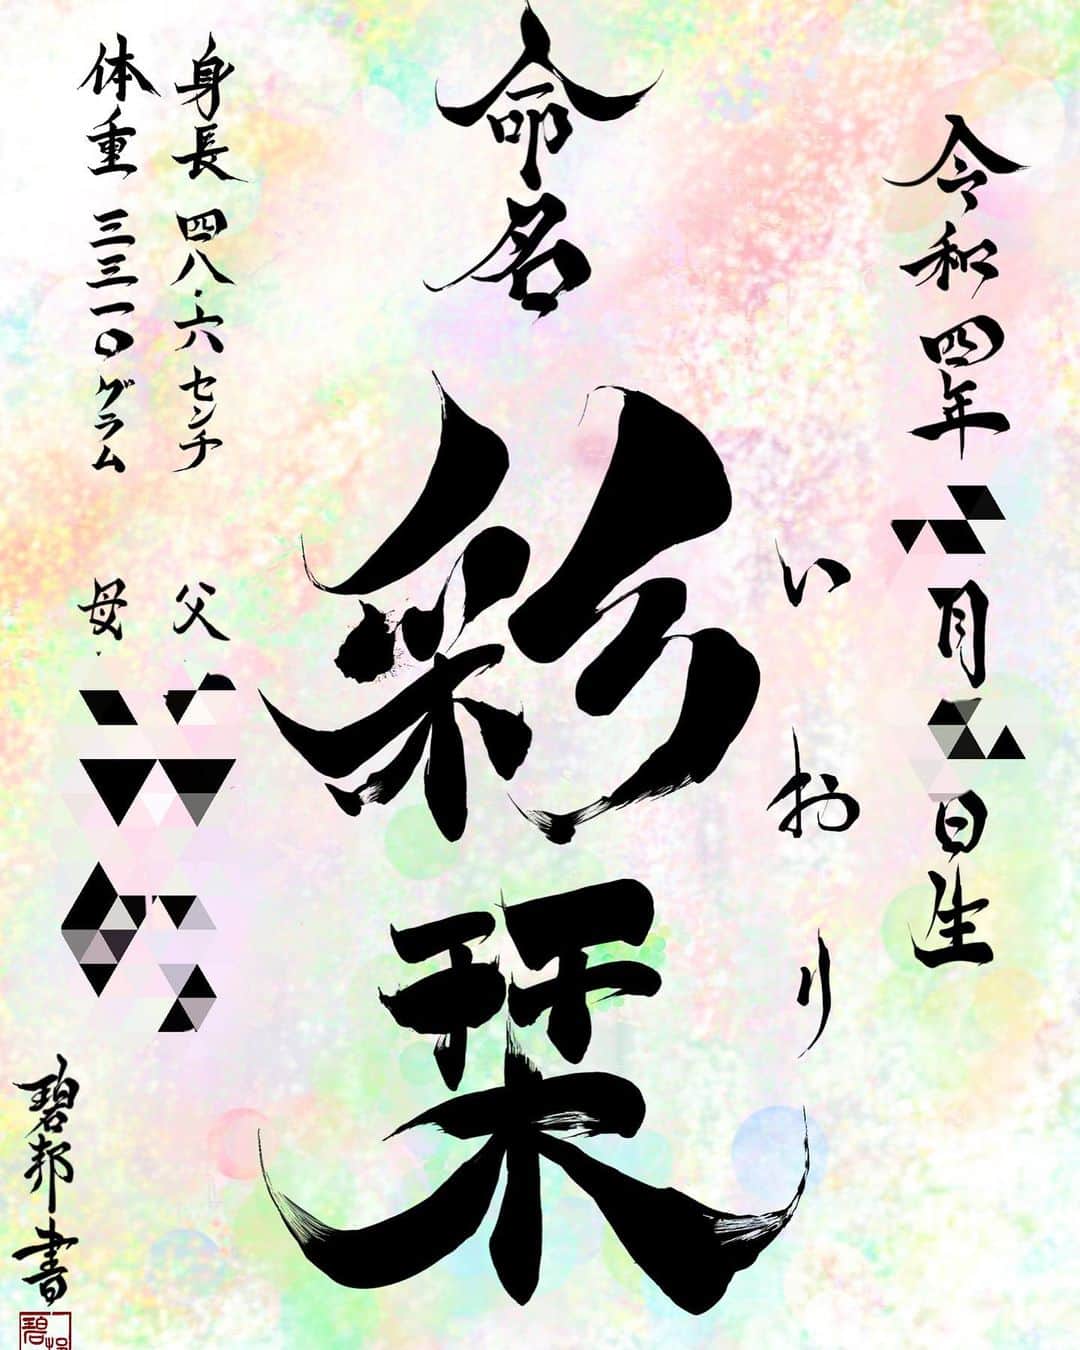 令和四年
月
日生
いおり
命名
彩栞
身長 四八・六センチ
体重 三三一〇グラム
父
母
碧邦書
碧